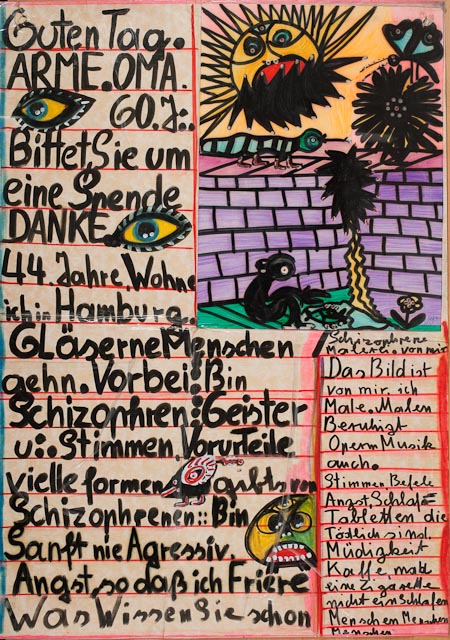 Guten Tag.
ARME.OMA.
60.J:.
Bittet,Sie um
eine Spende
DANKE.
44.Jahre.Wohne
ich in Hamburg.
GLäserne Menschen
gehn.Vorbei:Bin
Schizophren:Geister
u:.Stimmen,Vorurteile
vielle formen gibts von
Schizophrenen::Bin
Sanft nie Agressiv.
Angst,so daß ich Friere
Was Wissen Sie schon
Schizophrene
Malerei.von mir
Das Bild ist
von mir.ich
Male.Malen
Beruhigt
Opern Musik
auch.
Stimmen Befele
Angst,Schlafe
Tabletten die
Tödlich sind.
Müdigkeit
Kaffe,mal
eine Zigarette
nicht einschlafen
Menschen Menschen
Menschen